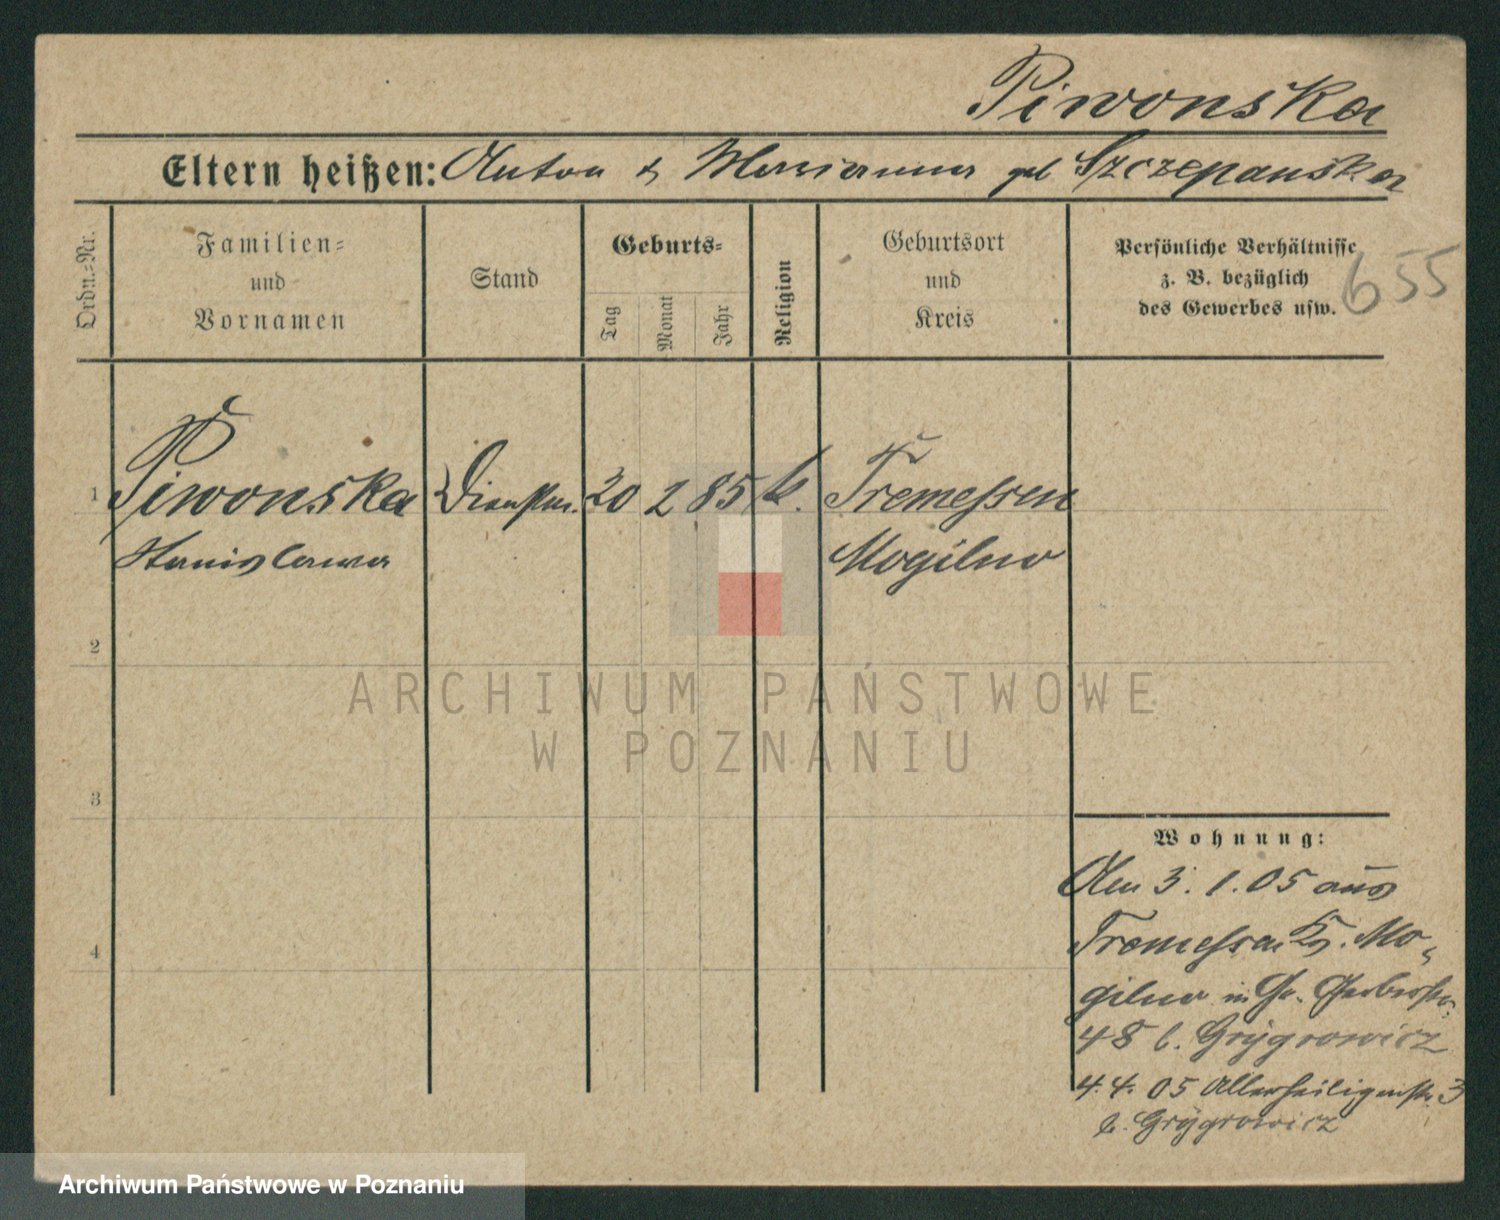 Piwonska
Eltern heißen: Anton & Marianna geb Szczepanska
Ordn.=Nr.
Familien=
und
Vornamen
Stand
Geburts=
Tag
Monat
Jahr
Religion
Geburtsort
und
Kreis
Persönliche Verhältnisse
z. B. bezüglich
des Gewerbes usw.
655
1 Piwonska Dienstm. 20 2 85 k. Tremessen
Stanislawa Mogilno
2
3
4
ARCHIWUM PAŃSTWOWE
W POZNANIU
Wohnung:
Den 3. 1. 05 aus
Tremessen Kr. Mo-
gilno in Gr. Gerberstr.
48 b. Grygrowicz
4. 4. 05 Allerheiligenstr. 3
b. Grygrowicz
Archiwum Państwowe w Poznaniu